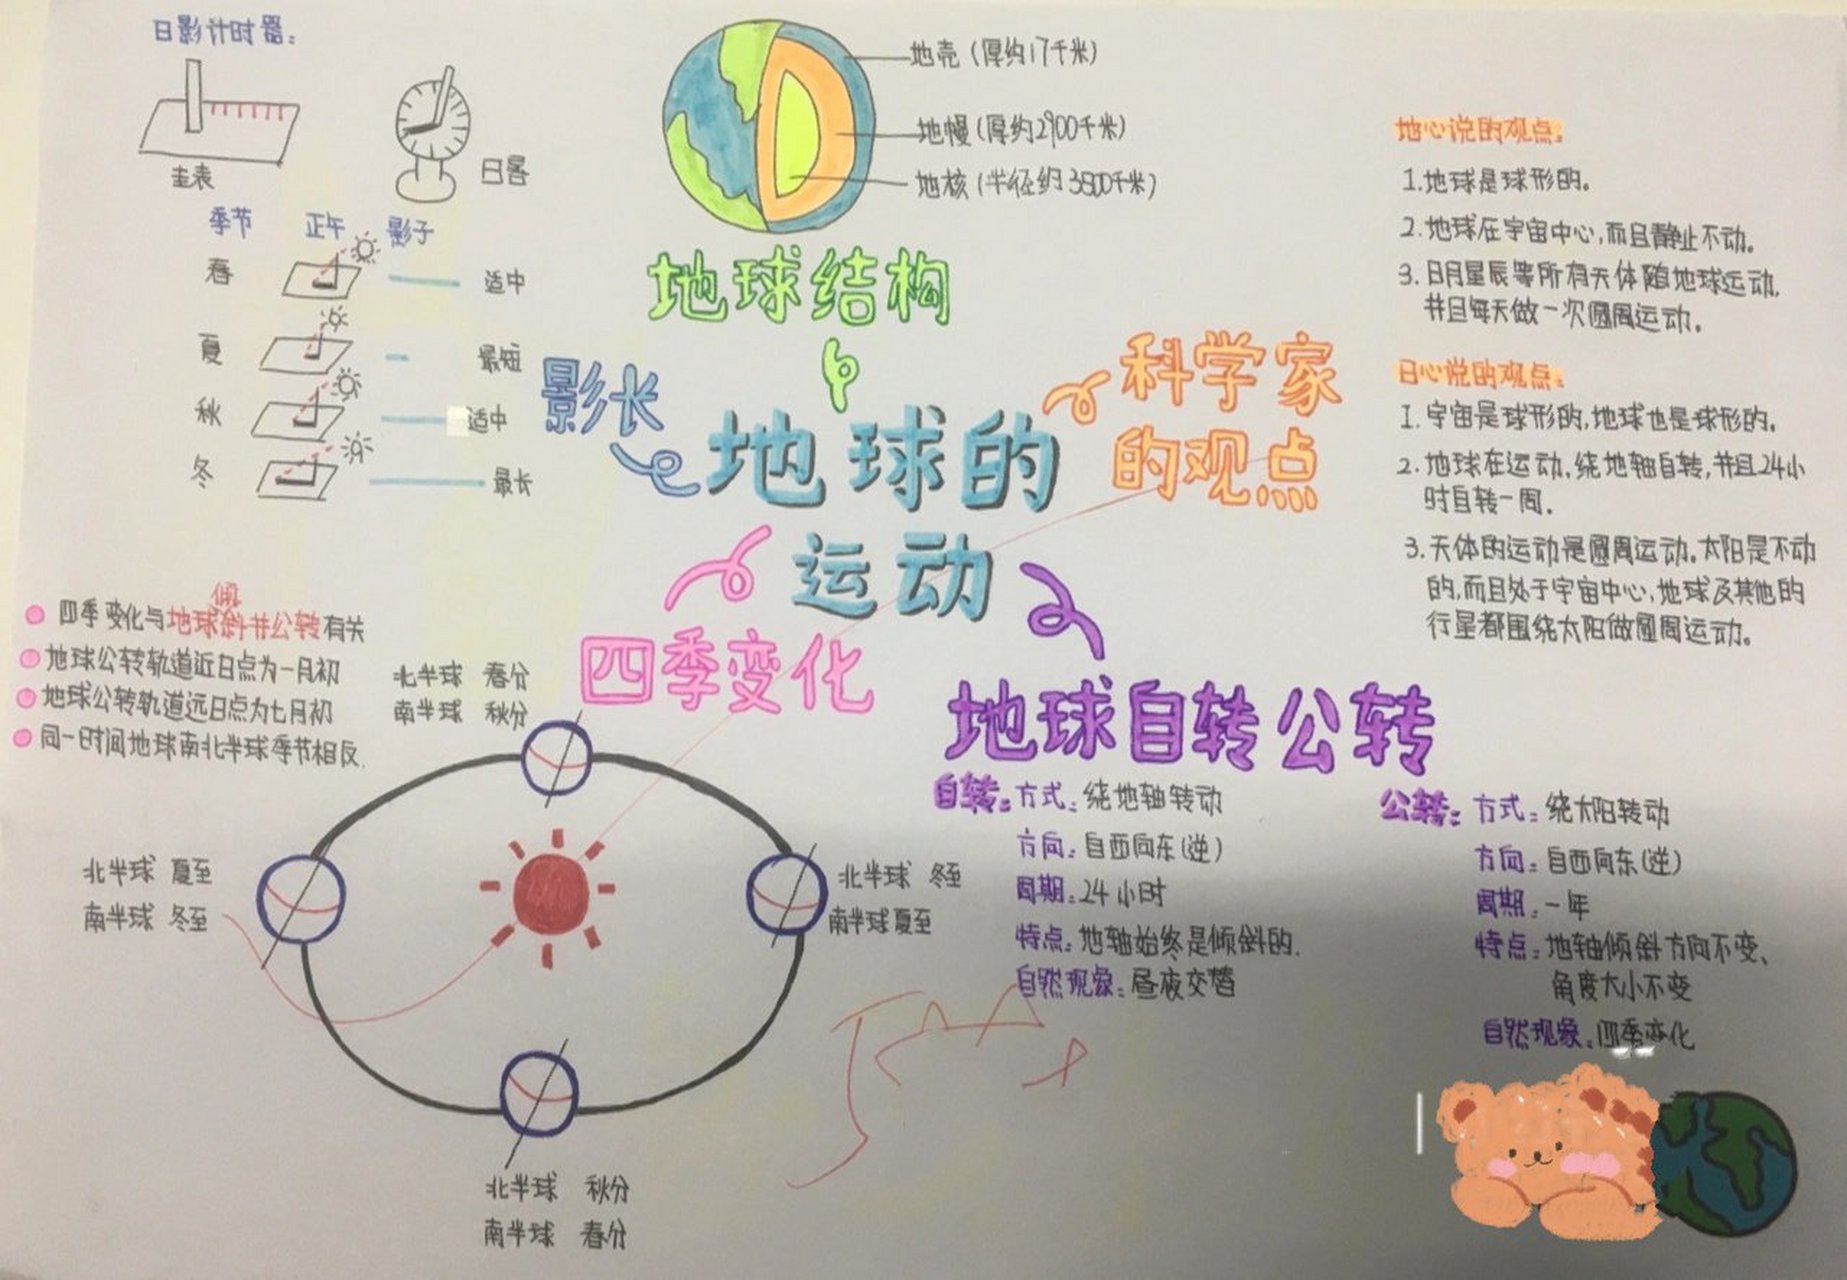 日影计时器:
圭表
日晷
季节 正午 影子
春 适中
夏 最短
秋 适中
冬 最长
影长
地壳(厚约17千米)
地幔(厚约2900千米)
地核(半径约3800千米)
地球结构
地球的
运动
科学家
的观点
地心说的观点:
1.地球是球形的。
2.地球在宇宙中心,而且静止不动。
3.日月星辰等所有天体随地球运动,
并且每天做一次圆周运动。
日心说的观点:
1.宇宙是球形的,地球也是球形的。
2.地球在运动,绕地轴自转,并且24小
时自转一周。
3.天体的运动是圆周运动。太阳是不动
的,而且处于宇宙中心,地球及其他的
行星都围绕太阳做圆周运动。
四季变化
倾
四季变化与地球斜并公转有关
地球公转轨道近日点为一月初
地球公转轨道远日点为七月初
同一时间地球南北半球季节相反.
北半球 春分
南半球 秋分
北半球 夏至
南半球 冬至
北半球 冬至
南半球夏至
北半球 秋分
南半球 春分
地球自转公转
自转:方式:绕地轴转动
方向:自西向东(逆)
周期:24小时
特点:地轴始终是倾斜的.
自然现象:昼夜交替
公转:方式:绕太阳转动
方向:自西向东(逆)
周期:一年
特点:地轴倾斜方向不变、
角度大小不变
自然现象:四季变化